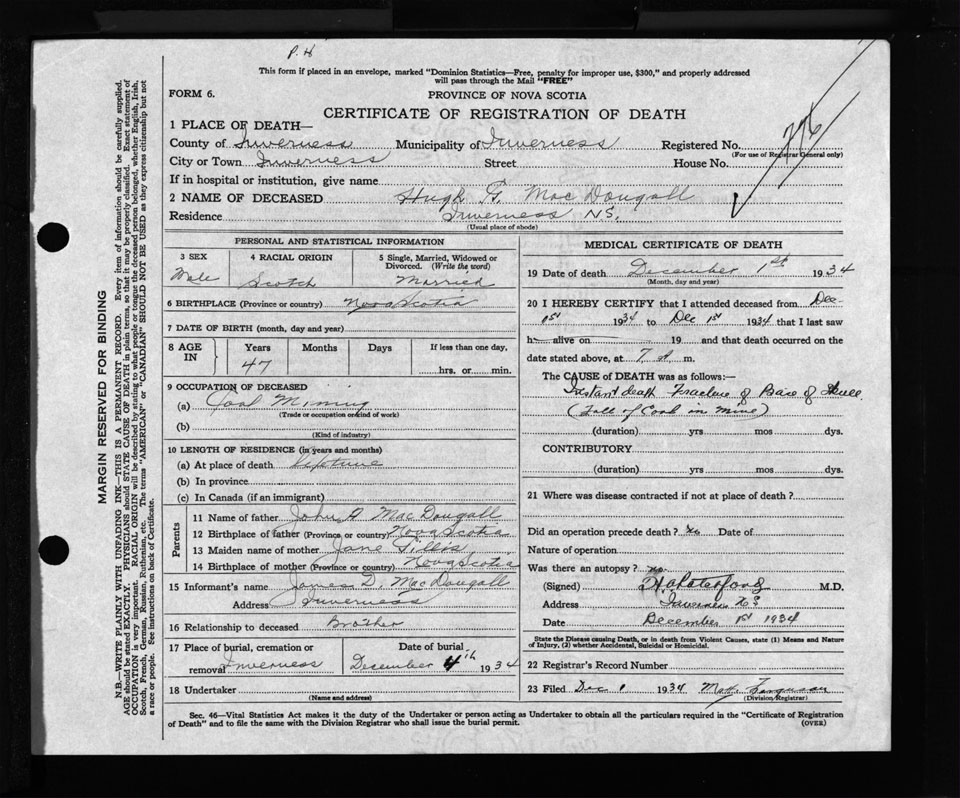 P. H
This form if placed in an envelope, marked "Dominion Statistics—Free, penalty for improper use, $300," and properly addressed
will pass through the Mail "FREE"
FORM 6.
PROVINCE OF NOVA SCOTIA
CERTIFICATE OF REGISTRATION OF DEATH
1 PLACE OF DEATH—
County of Inverness Municipality of Inverness Registered No.
(For use of Registrar General only)
City or Town Inverness Street House No.
If in hospital or institution, give name
2 NAME OF DECEASED Hugh MacDougall
Residence Inverness N.S.
(Usual place of abode)
PERSONAL AND STATISTICAL INFORMATION
3 SEX Male
4 RACIAL ORIGIN Scotch
5 Single, Married, Widowed or Divorced. (Write the word) Married
6 BIRTHPLACE (Province or country) Nova Scotia
7 DATE OF BIRTH (month, day and year)
8 AGE IN Years Months Days If less than one day,
47 hrs. or min.
9 OCCUPATION OF DECEASED
(a) Coal Mining
(Trade or occupation or kind of work)
(b)
(Kind of industry)
10 LENGTH OF RESIDENCE (in years and months)
(a) At place of death Lifetime
(b) In province
(c) In Canada (if an immigrant)
Parents
11 Name of father John A MacDougall
12 Birthplace of father (Province or country) Nova Scotia
13 Maiden name of mother Jane Gillis
14 Birthplace of mother (Province or country) Nova Scotia
15 Informant's name James D. MacDougall
Address Inverness
16 Relationship to deceased Brother
17 Place of burial, cremation or removal Inverness
Date of burial December 4th 1934
18 Undertaker
(Name and address)
MEDICAL CERTIFICATE OF DEATH
19 Date of death December 1st 1934
(Month, day and year)
20 I HEREBY CERTIFY that I attended deceased from Dec
1st 1934 to Dec 1st 1934 that I last saw
h alive on 19 and that death occurred on the
date stated above, at 7 m.
The CAUSE of DEATH was as follows:—
Instant death Fracture of Base of Skull
(Fall of Coal in Mine)
(duration) yrs mos dys.
CONTRIBUTORY
(duration) yrs mos dys.
21 Where was disease contracted if not at place of death?
Did an operation precede death? no Date of
Nature of operation
Was there an autopsy? no.
(Signed) M.D.
Address Inverness N S
Date December 1st 1934
State the Disease causing Death, or in death from Violent Causes, state (1) Means and Nature
of Injury, (2) whether Accidental, Suicidal or Homicidal.
22 Registrar's Record Number
23 Filed Dec 1 1934 Ferguson
(Division Registrar)
Sec. 46—Vital Statistics Act makes it the duty of the Undertaker or person acting as Undertaker to obtain all the particulars required in the "Certificate of Registration
of Death" and to file the same with the Division Registrar who shall issue the burial permit. (OVER)
MARGIN RESERVED FOR BINDING
N.B.—WRITE PLAINLY WITH UNFADING INK—THIS IS A PERMANENT RECORD. Every item of information should be carefully supplied.
AGE should be stated EXACTLY. PHYSICIANS should STATE CAUSE OF DEATH in plain terms, so that it may be properly classified. Exact statement of
OCCUPATION is very important. RACIAL ORIGIN will be described by stating to what people or tongue the deceased person belonged, whether English, Irish,
Scotch, French, German, Russian, Ruthenian, etc. The terms "AMERICAN" or "CANADIAN" SHOULD NOT BE USED as they express citizenship but not
a race or people. See instructions on back of Certificate.